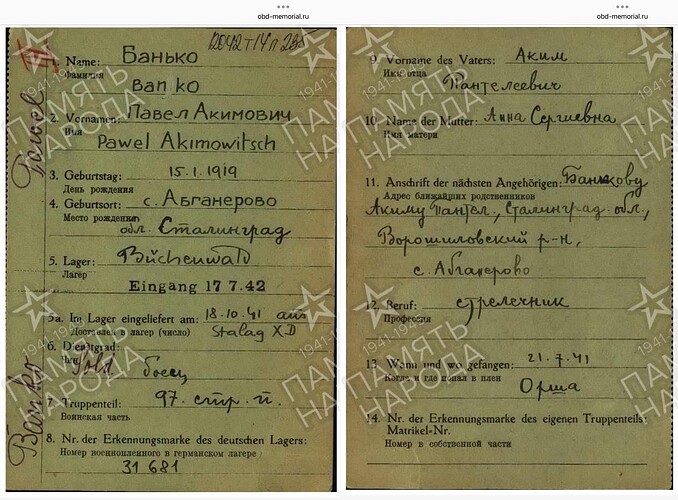 obd-memorial.ru
12042 т 14 л 235
1. Name: Банько
Фамилия
Banko
2. Vorname: Павел Акимович
Имя
Pawel Akimowitsch
3. Geburtstag: 15.1.1919
День рождения
4. Geburtsort: с. Абганерово
Место рождения
обл. Сталинград
5. Lager: Büchenwald
Лагерь
Eingang 17 7.42
5a. Im Lager eingeliefert am: 18.10.41 aus
Доставлен в лагерь (число) Stalag X D
6. Dienstgrad: Sold
Чин боец
7. Truppenteil: 97. стр. п.
Воинская часть
8. Nr. der Erkennungsmarke des deutschen Lagers:
Номер военнопленного в германском лагере
31 681
Pawel
Banko
obd-memorial.ru
9. Vorname des Vaters: Аким
Имя отца
Пантелеевич
10. Name der Mutter: Анна Сергиевна
Имя матери
11. Anschrift der nächsten Angehörigen: Банькову
Адрес ближайших родственников
Акиму Пантел., Сталинград. обл.,
Ворошиловский р-н,
с. Абганерово
12. Beruf: стрелечник
Профессия
13. Wann und wo gefangen: 21.7.41
Когда и где попал в плен
Орша
14. Nr. der Erkennungsmarke des eigenen Truppenteils:
Matrikel-Nr.
Номер в собственной части
ПАМЯТЬ
НАРОДА
1941-1945